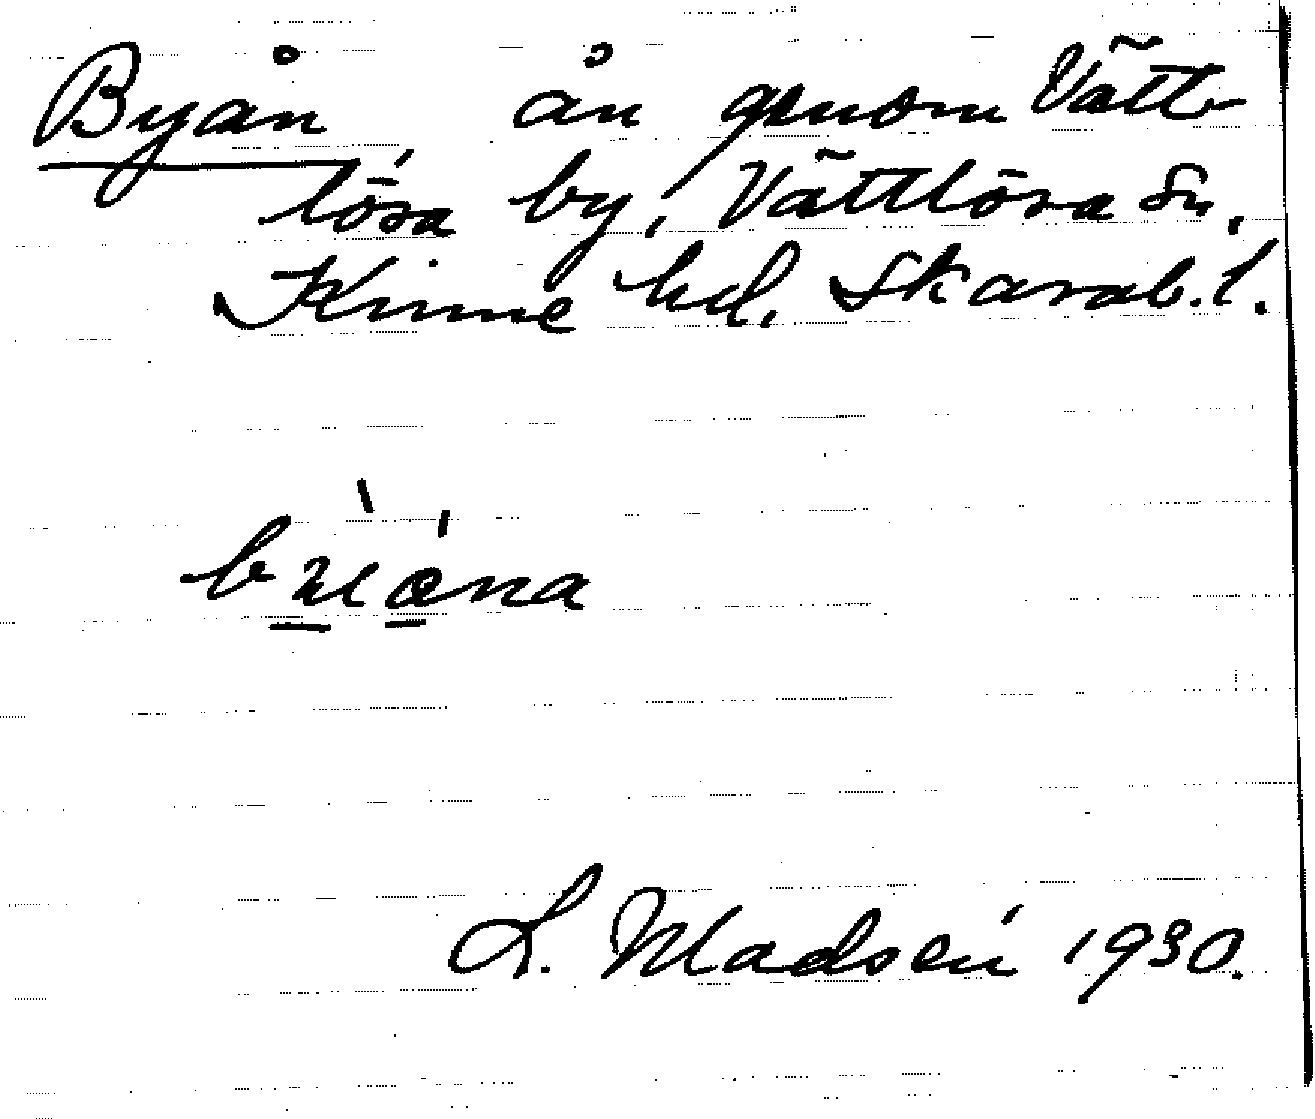 Byån, ån genom Vätt-
lösa by, Vättlösa sn,
Kinne hd, Skarab. l.
L. Madsén 1930.